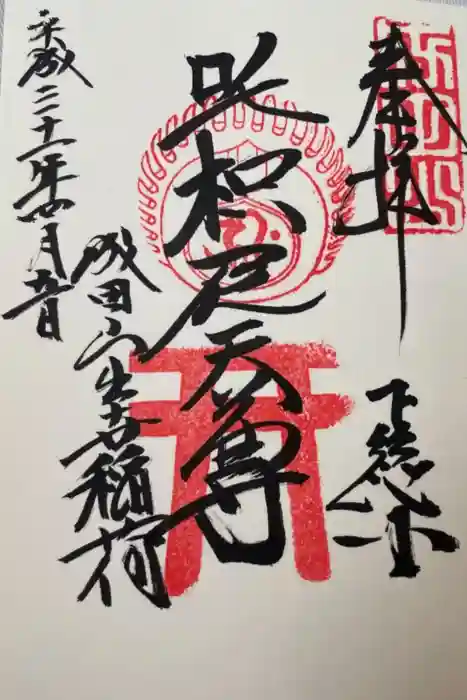 奉拝
下総
吒枳尼天尊
成田山出世稲荷
平成三十一年四月五日